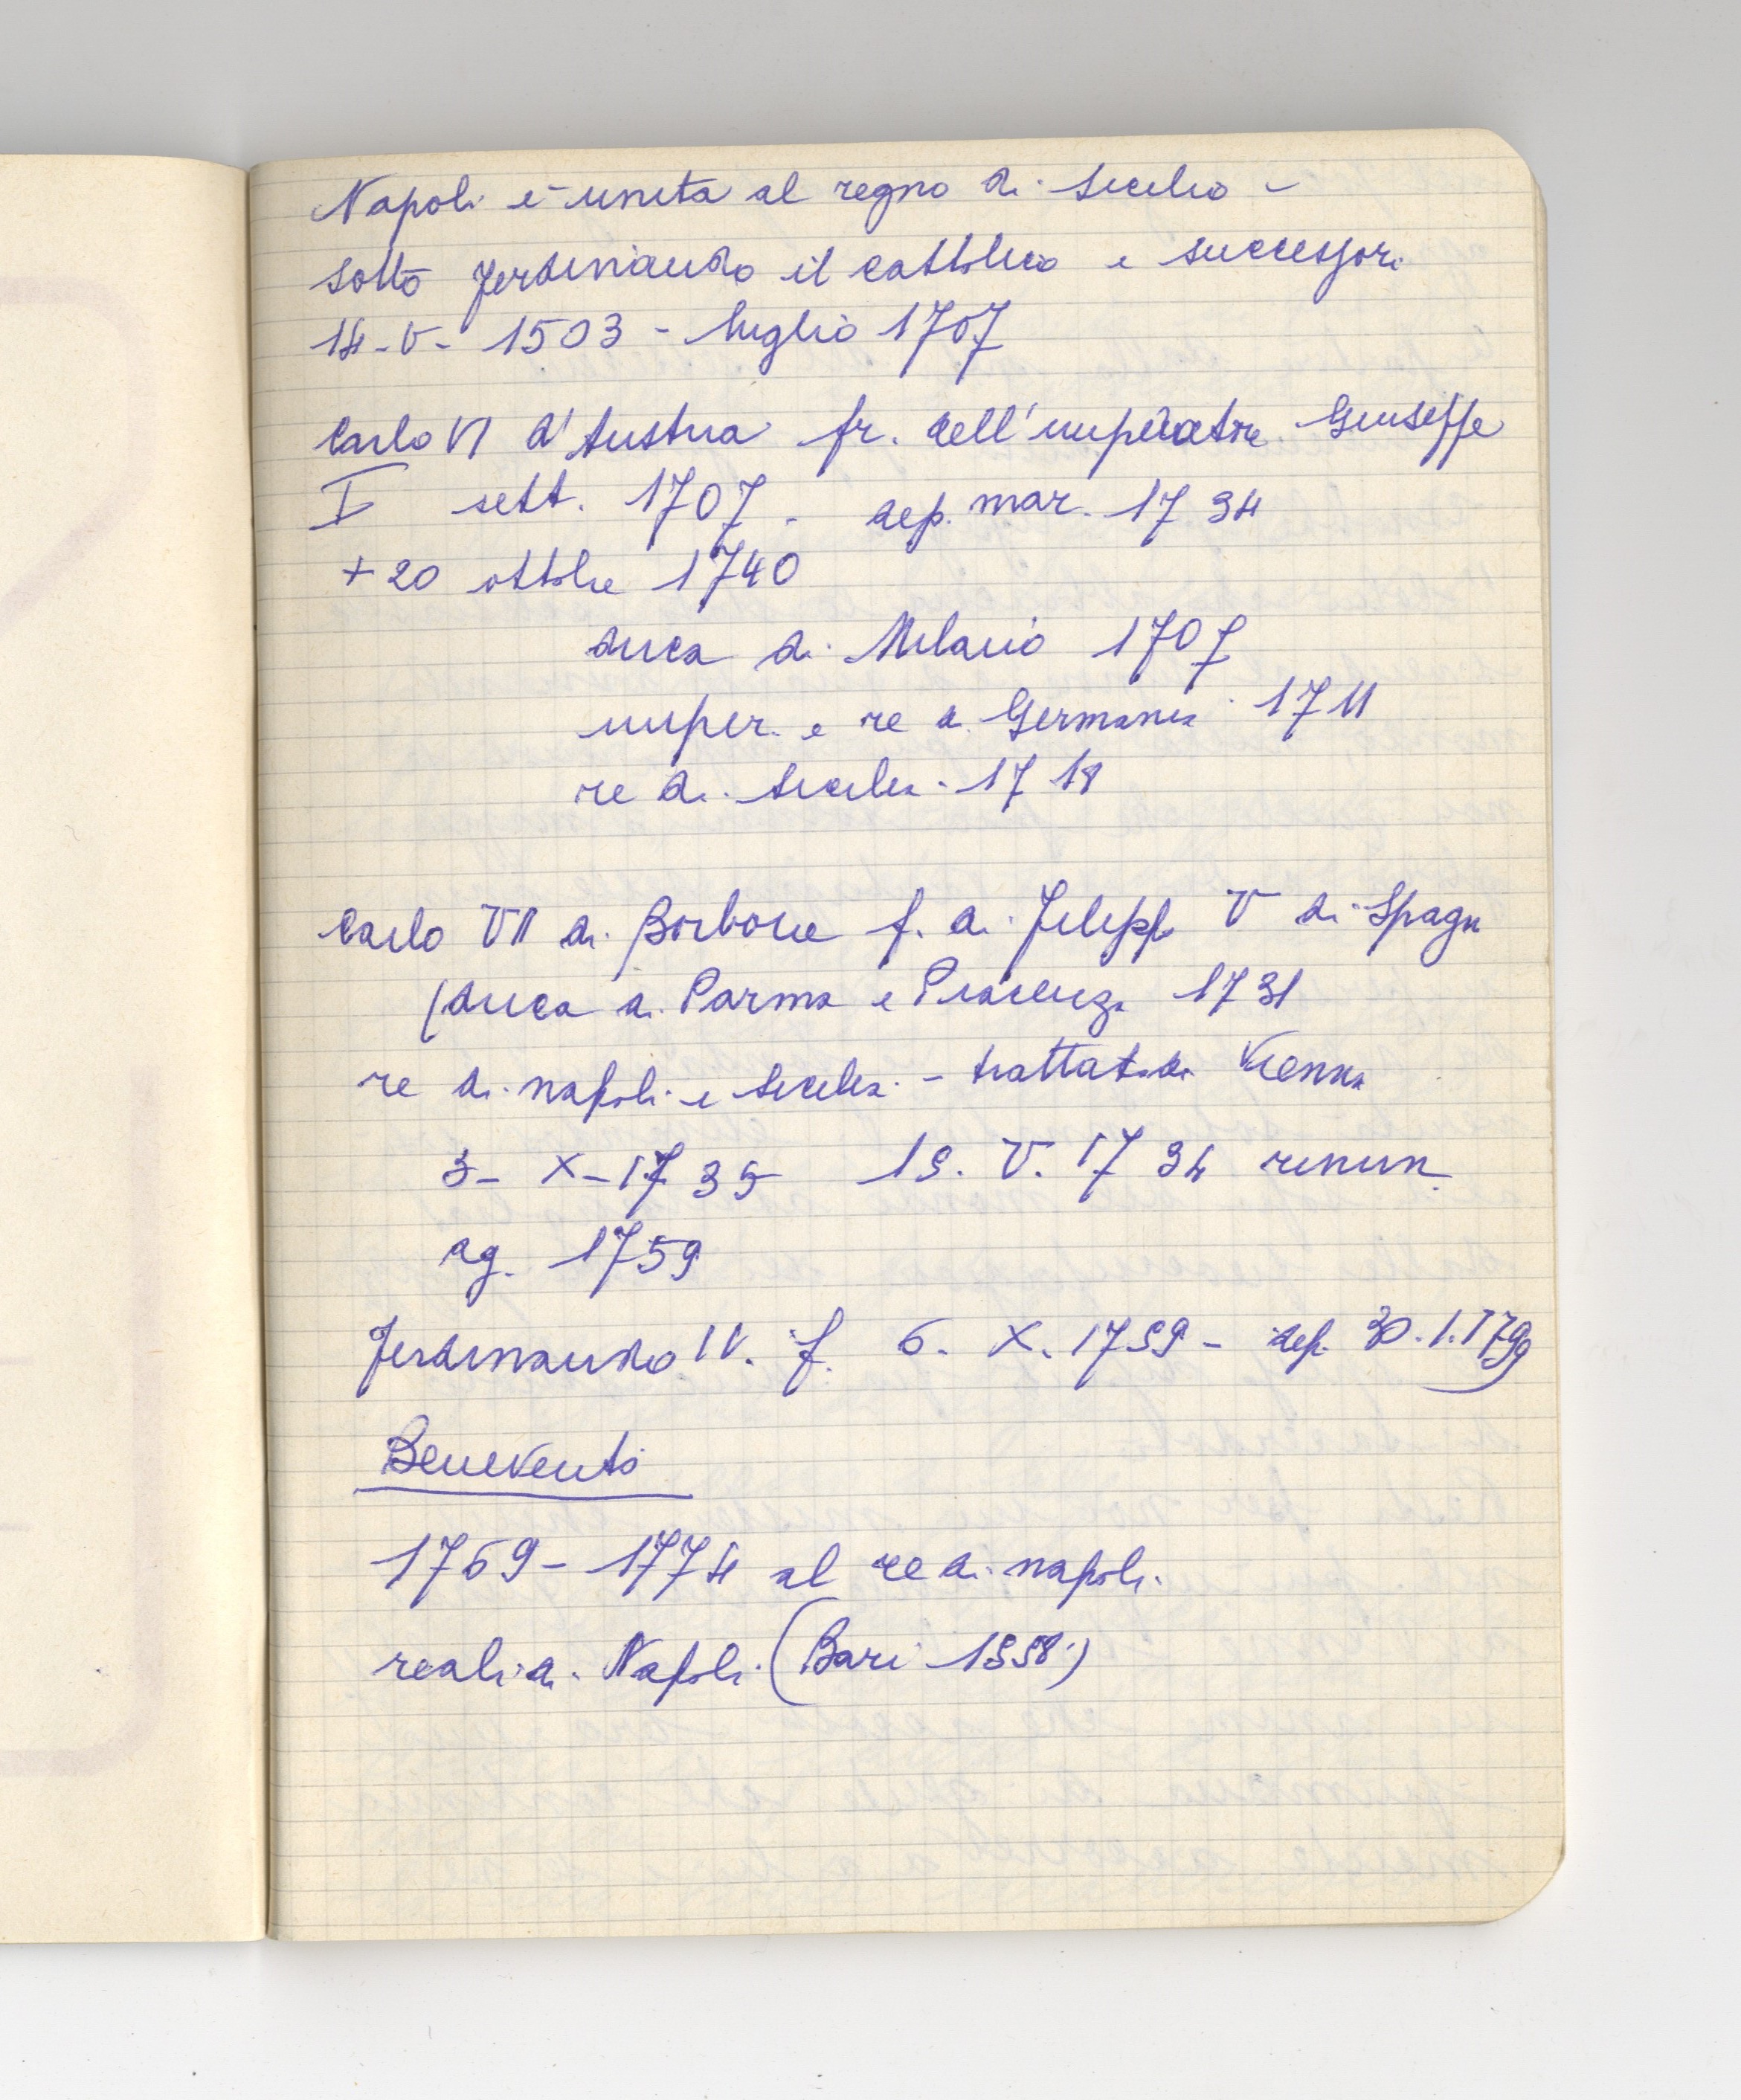 Napoli è unita al regno di Sicilia -
sotto Ferdinando il cattolico e successori
14-V- 1503 - luglio 1707
Carlo VI d'Austria fr. dell'imperatore Giuseppe
I sett. 1707 - dep. mar. 1734
+ 20 ottobre 1740
duca di Milano 1707
imper. e re di Germania 1711
re di Sicilia 1718
Carlo VII di Borbone f. di Filippo V di Spagn
(duca di Parma e Piacenza 1731
re di napoli e Sicilia - trattato di Vienna
3- X-1735 15. V. 1734 rinun.
ag. 1759
Ferdinando IV. f. 6. X. 1759 - dep. 30.1.1799
Benevento
1769-1774 al re di napoli
reali di Napoli (Bari 1558)